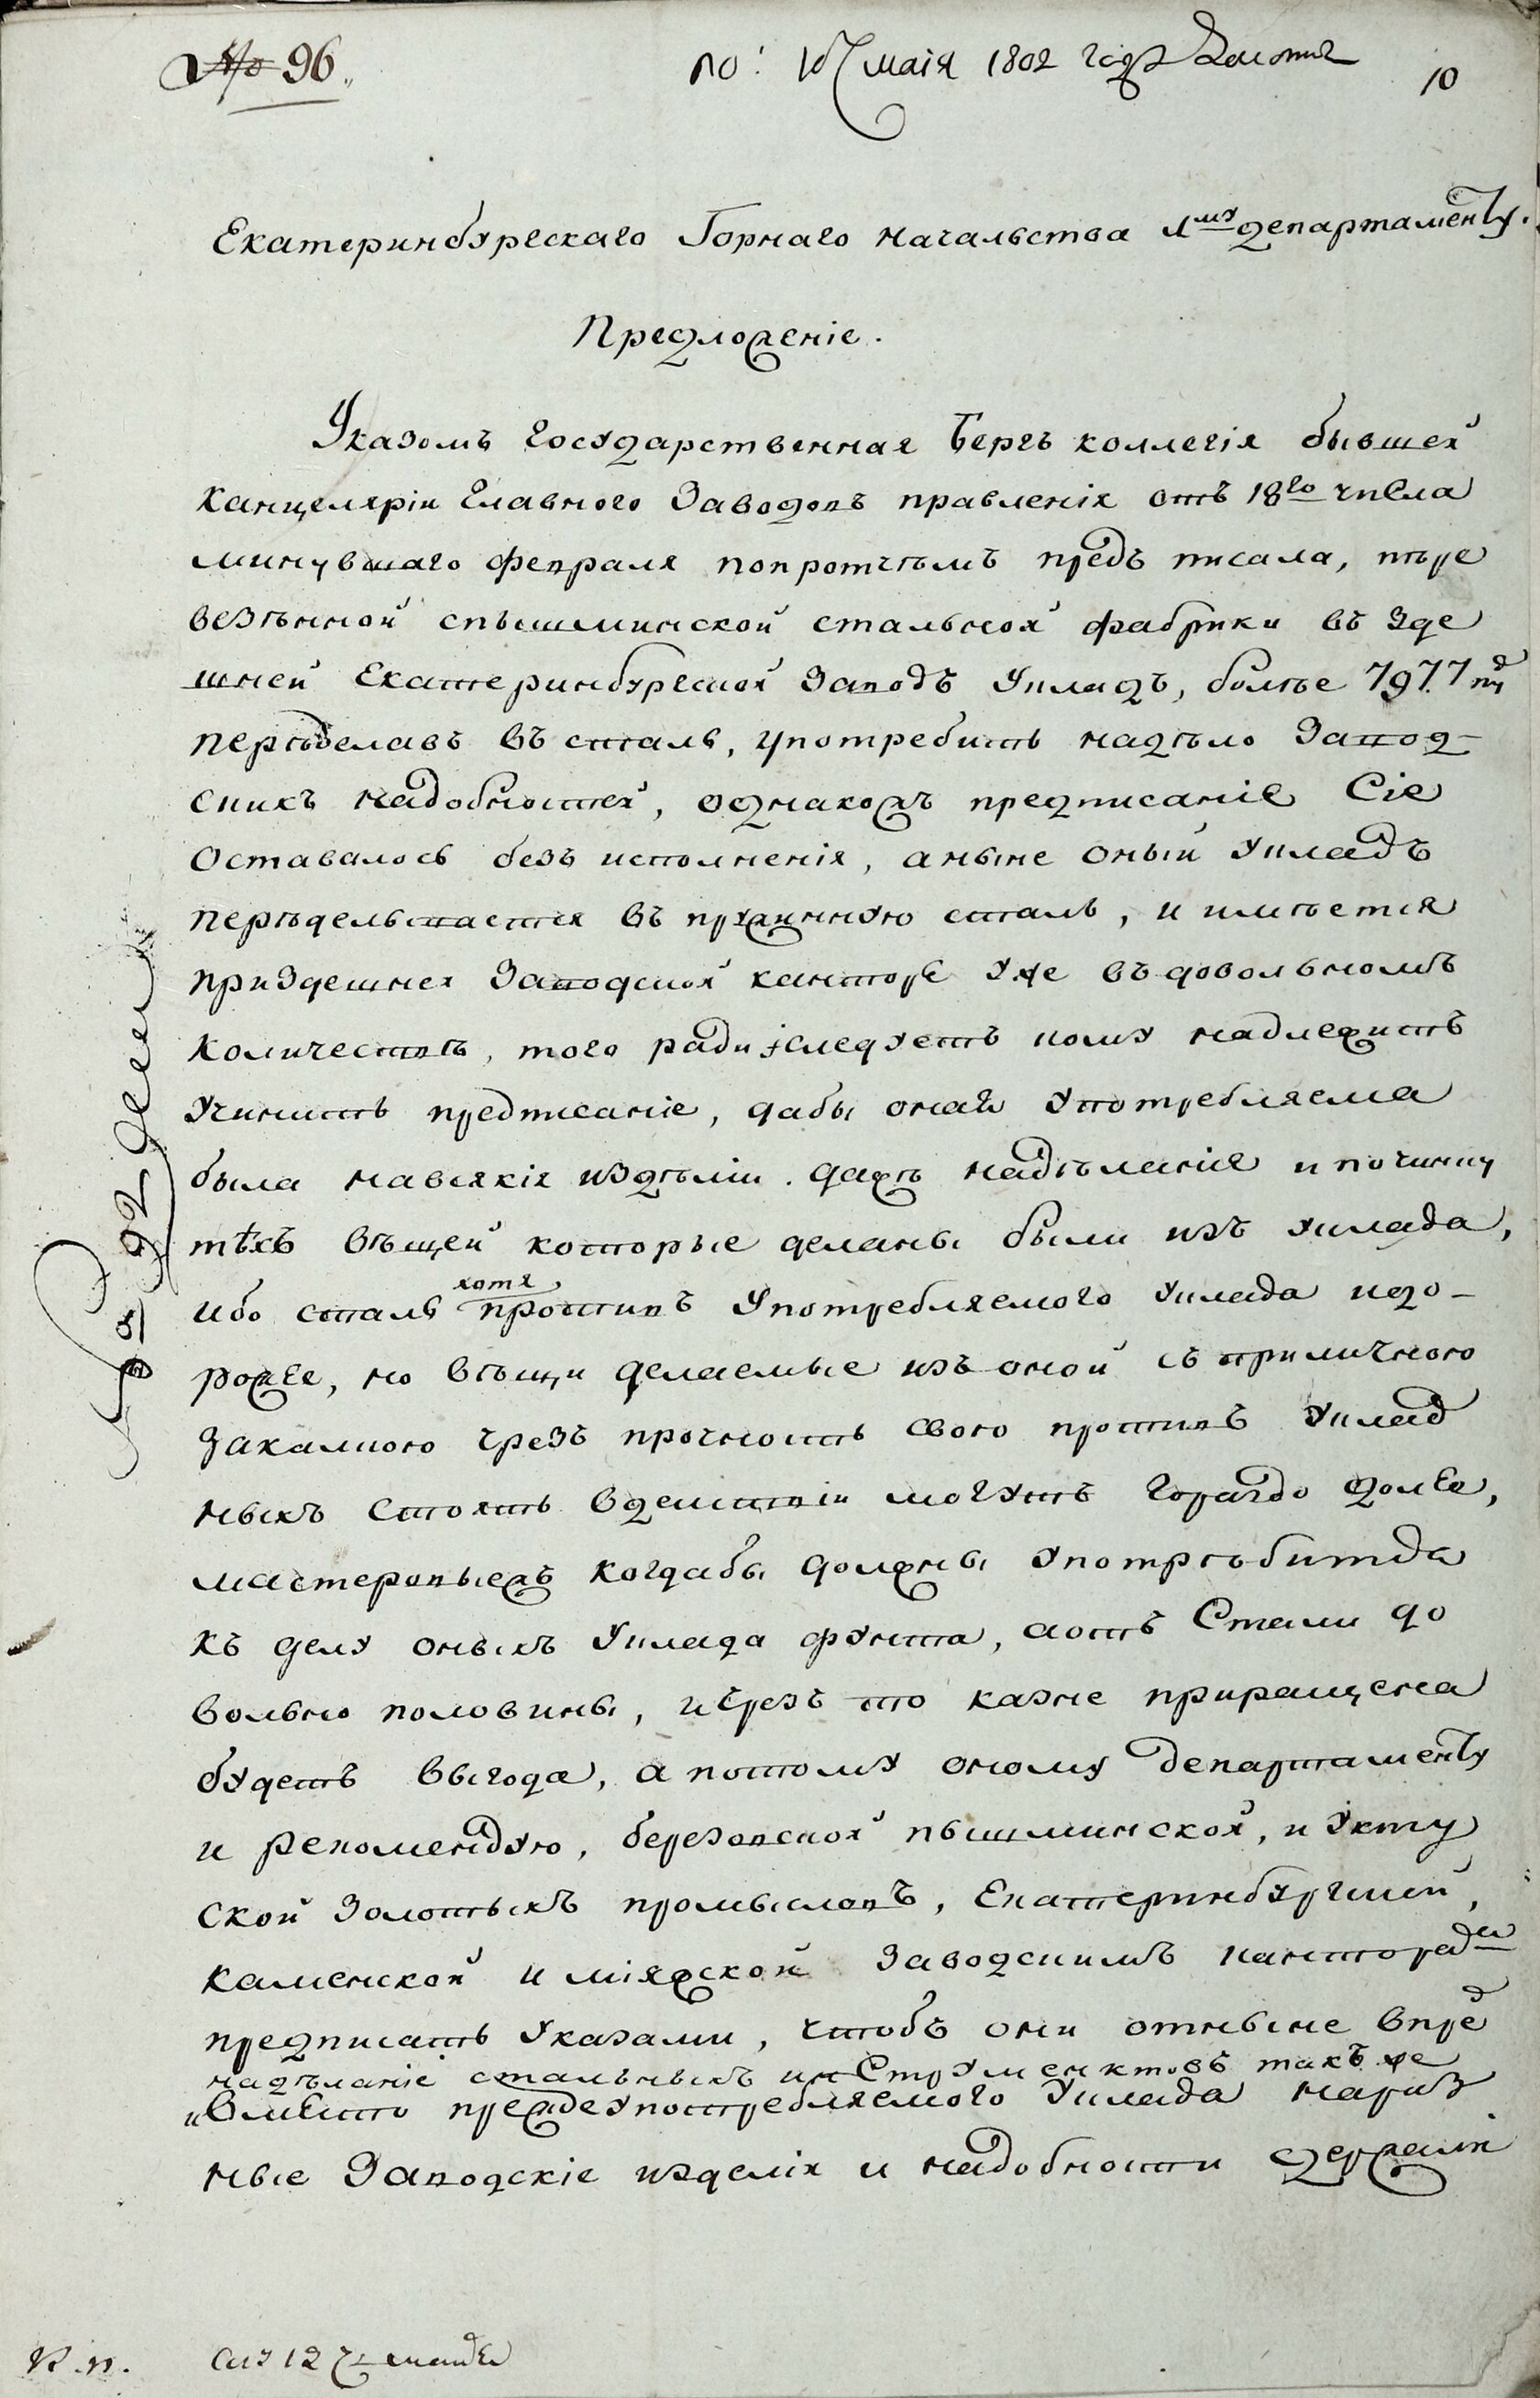 № 96.
по: 10 маія 1802 года
10
Екатеринбургскаго Горнаго начальства 1му департаменту.
Предложеніе.
Указомъ Государственная Бергъ коллегія бывшей
канцеляріи Главного Заводовъ правленія отъ 18го числа
минувшаго февраля попротчѣмъ предъ писала, пѣре
везѣнной спышминской стальной фабрики въ зде
шней Екатеринбургской Заводъ укладъ, болѣе 7977 пу
перѣделавъ въ сталь, употребить надѣло завод-
скихъ надобностей, однакожъ предписаніе Сіе
оставалось безъ исполненія, аныне оный укладъ
перѣдельвается въ пружинную сталь, и имѣется
призде­шней Заводской канторе уже въ довольномъ
количествѣ, того ради следуетъ кому надлежитъ
учинить предписаніе, дабы оная употребляема
была навсякія издѣліи. дажѣ надѣланіе и починку
тѣхъ вѣщей которые деланы были изъ уклада,
хотя
ибо сталь противъ употребляемого уклада идо-
роже, но вѣщи делаемые изъ оной съ приличною
закалкою чрезъ прочность свою противъ уклад
ныхъ стоять вдействіи могутъ гораздо долѣе,
мастеровыежъ когдабы должны употрѣбитда
къ делу оныхъ уклада фунта, аотъ Стали до
вольно половины, ичрезъ то казне приращена
будетъ выгода, а потому оному департаменту
и рекомендую, березовской пышминской, и Укту
ской золотыхъ промысловъ, Екатеринбургской,
каменской и міяской заводскимъ канторамъ
предписать указами, чтобъ они отныне впред
надѣланіе стальныхъ инСтрументовъ такъ же
и вмѣсто прежде употребляемого уклада нараз
ные Заводскіе изделія и надобности держали
К. п.